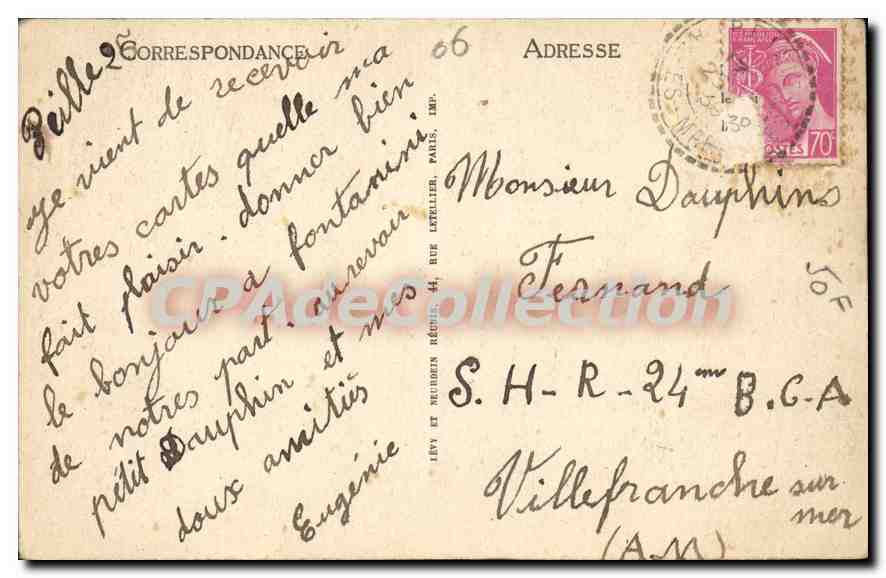 CORRESPONDANCE
Peille 25
je vient de recevoir
votres cartes quelle ma
fait plaisir. donner bien
le bonjour a fontanini
de notres part. au revoir
pétit Dauphin et mes
doux amitiés
Eugénie
LÉVY ET NEURDEIN RÉUNIS, 44, RUE LETELLIER, PARIS, IMP.
06
ADRESSE
70c
POSTES
Monsieur Dauphins
Fernand
50F
S. H-R-24ème B.C-A
Villefranche sur
mer
(A-M)
CPAdeCollection